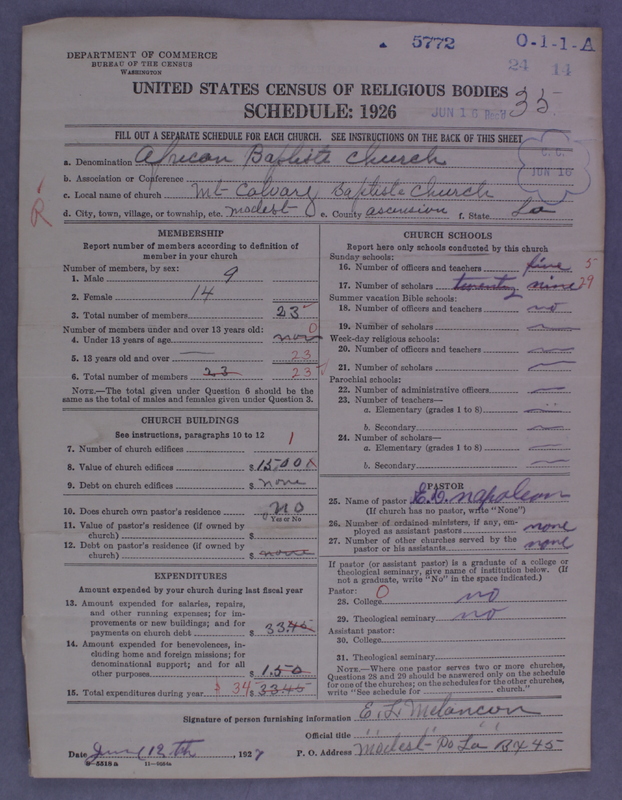 DEPARTMENT OF COMMERCE
BUREAU OF THE CENSUS
WASHINGTON
5772
O-1-1-A
24 14
UNITED STATES CENSUS OF RELIGIOUS BODIES
SCHEDULE: 1926
JUN 16 35
FILL OUT A SEPARATE SCHEDULE FOR EACH CHURCH. SEE INSTRUCTIONS ON THE BACK OF THIS SHEET
JUN 16
R
a. Denomination African Baptiste Church
b. Association or Conference
c. Local name of church Mt Calvary Baptiste Church
d. City, town, village, or township, etc. Modest e. County ascension f. State La
MEMBERSHIP
Report number of members according to definition of
member in your church
Number of members, by sex:
1. Male 9
2. Female 14
3. Total number of members 23
Number of members under and over 13 years old: 0
4. Under 13 years of age non
5. 13 years old and over 23
6. Total number of members 23 23
NOTE.—The total given under Question 6 should be the
same as the total of males and females given under Question 3.
CHURCH BUILDINGS
See instructions, paragraphs 10 to 12
7. Number of church edifices 1
8. Value of church edifices $ 1500
9. Debt on church edifices $ none
10. Does church own pastor's residence? no
Yes or No
11. Value of pastor's residence (if owned by
church) $
12. Debt on pastor's residence (if owned by
church) $ none
EXPENDITURES
Amount expended by your church during last fiscal year
13. Amount expended for salaries, repairs,
and other running expenses; for im-
provements or new buildings; and for
payments on church debt $ 33.45
14. Amount expended for benevolences, in-
cluding home and foreign missions; for
denominational support; and for all
other purposes $ 1.50
15. Total expenditures during year $ 34. 33.45
CHURCH SCHOOLS
Report here only schools conducted by this church
Sunday schools:
16. Number of officers and teachers five 5
17. Number of scholars twenty nine 29
Summer vacation Bible schools:
18. Number of officers and teachers no
19. Number of scholars
Week-day religious schools:
20. Number of officers and teachers
21. Number of scholars
Parochial schools:
22. Number of administrative officers
23. Number of teachers—
a. Elementary (grades 1 to 8)
b. Secondary
24. Number of scholars—
a. Elementary (grades 1 to 8)
b. Secondary
PASTOR
25. Name of pastor E. D. napoleon
(If church has no pastor, write "None")
26. Number of ordained ministers, if any, em-
ployed as assistant pastors none
27. Number of other churches served by the
pastor or his assistants none
If pastor (or assistant pastor) is a graduate of a college or
theological seminary, give name of institution below. (If
not a graduate, write "No" in the space indicated.)
Pastor: 0
28. College no
29. Theological seminary no
Assistant pastor:
30. College
31. Theological seminary
NOTE.—Where one pastor serves two or more churches,
Questions 28 and 29 should be answered only on the schedule
for one of the churches; on the schedules for the other churches,
write "See schedule for church."
Signature of person furnishing information E. L. Melancon
Official title " " "
Date June 12th, 1927 P. O. Address Modest Po La Bx 45
8—5518a 11—